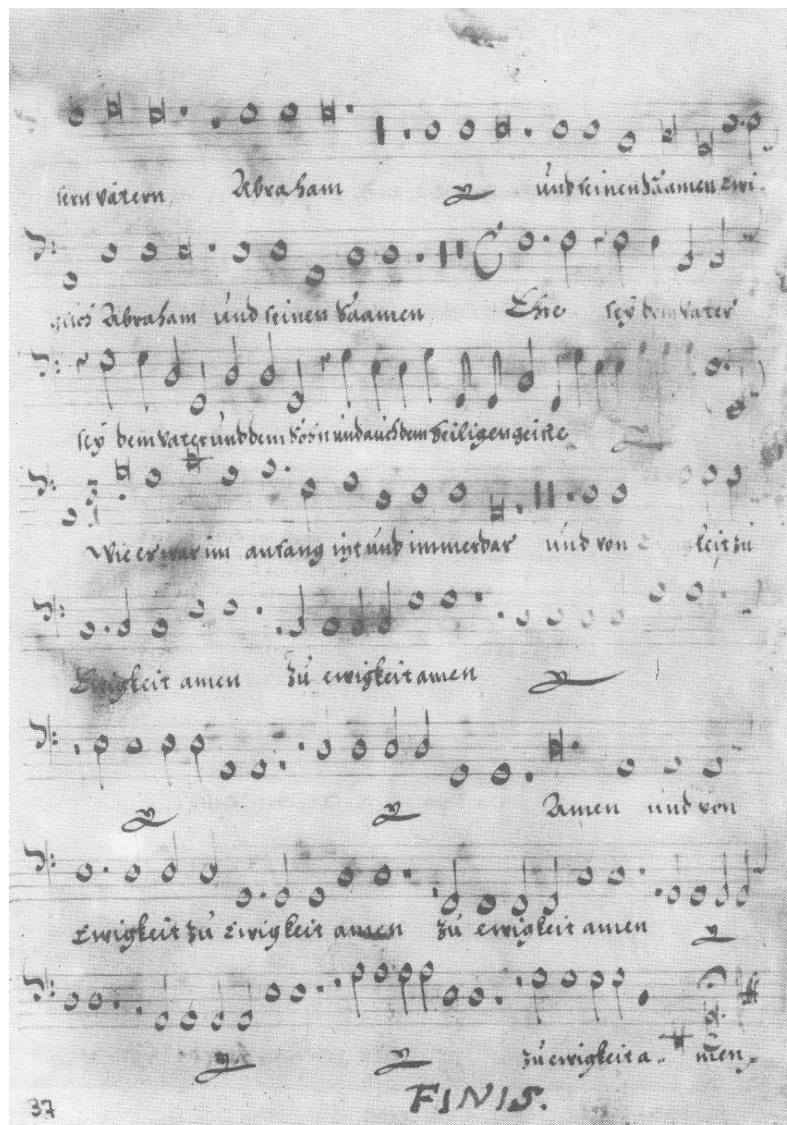 sern vätern Abraham und seinen Säamen ewi-
glich Abraham und seinen Saamen Ehre seÿ dem Vater
seÿ dem Vater und dem Sohn und auch dem heiligen geiste
Wie er war im anfang ist und immerdar und von keit zu
Ewigkeit amen zu ewigkeit amen
Amen und von
Ewigkeit zu Ewigkeit amen zu ewigkeit amen
zu ewigkeit a- men.
37 FINIS.